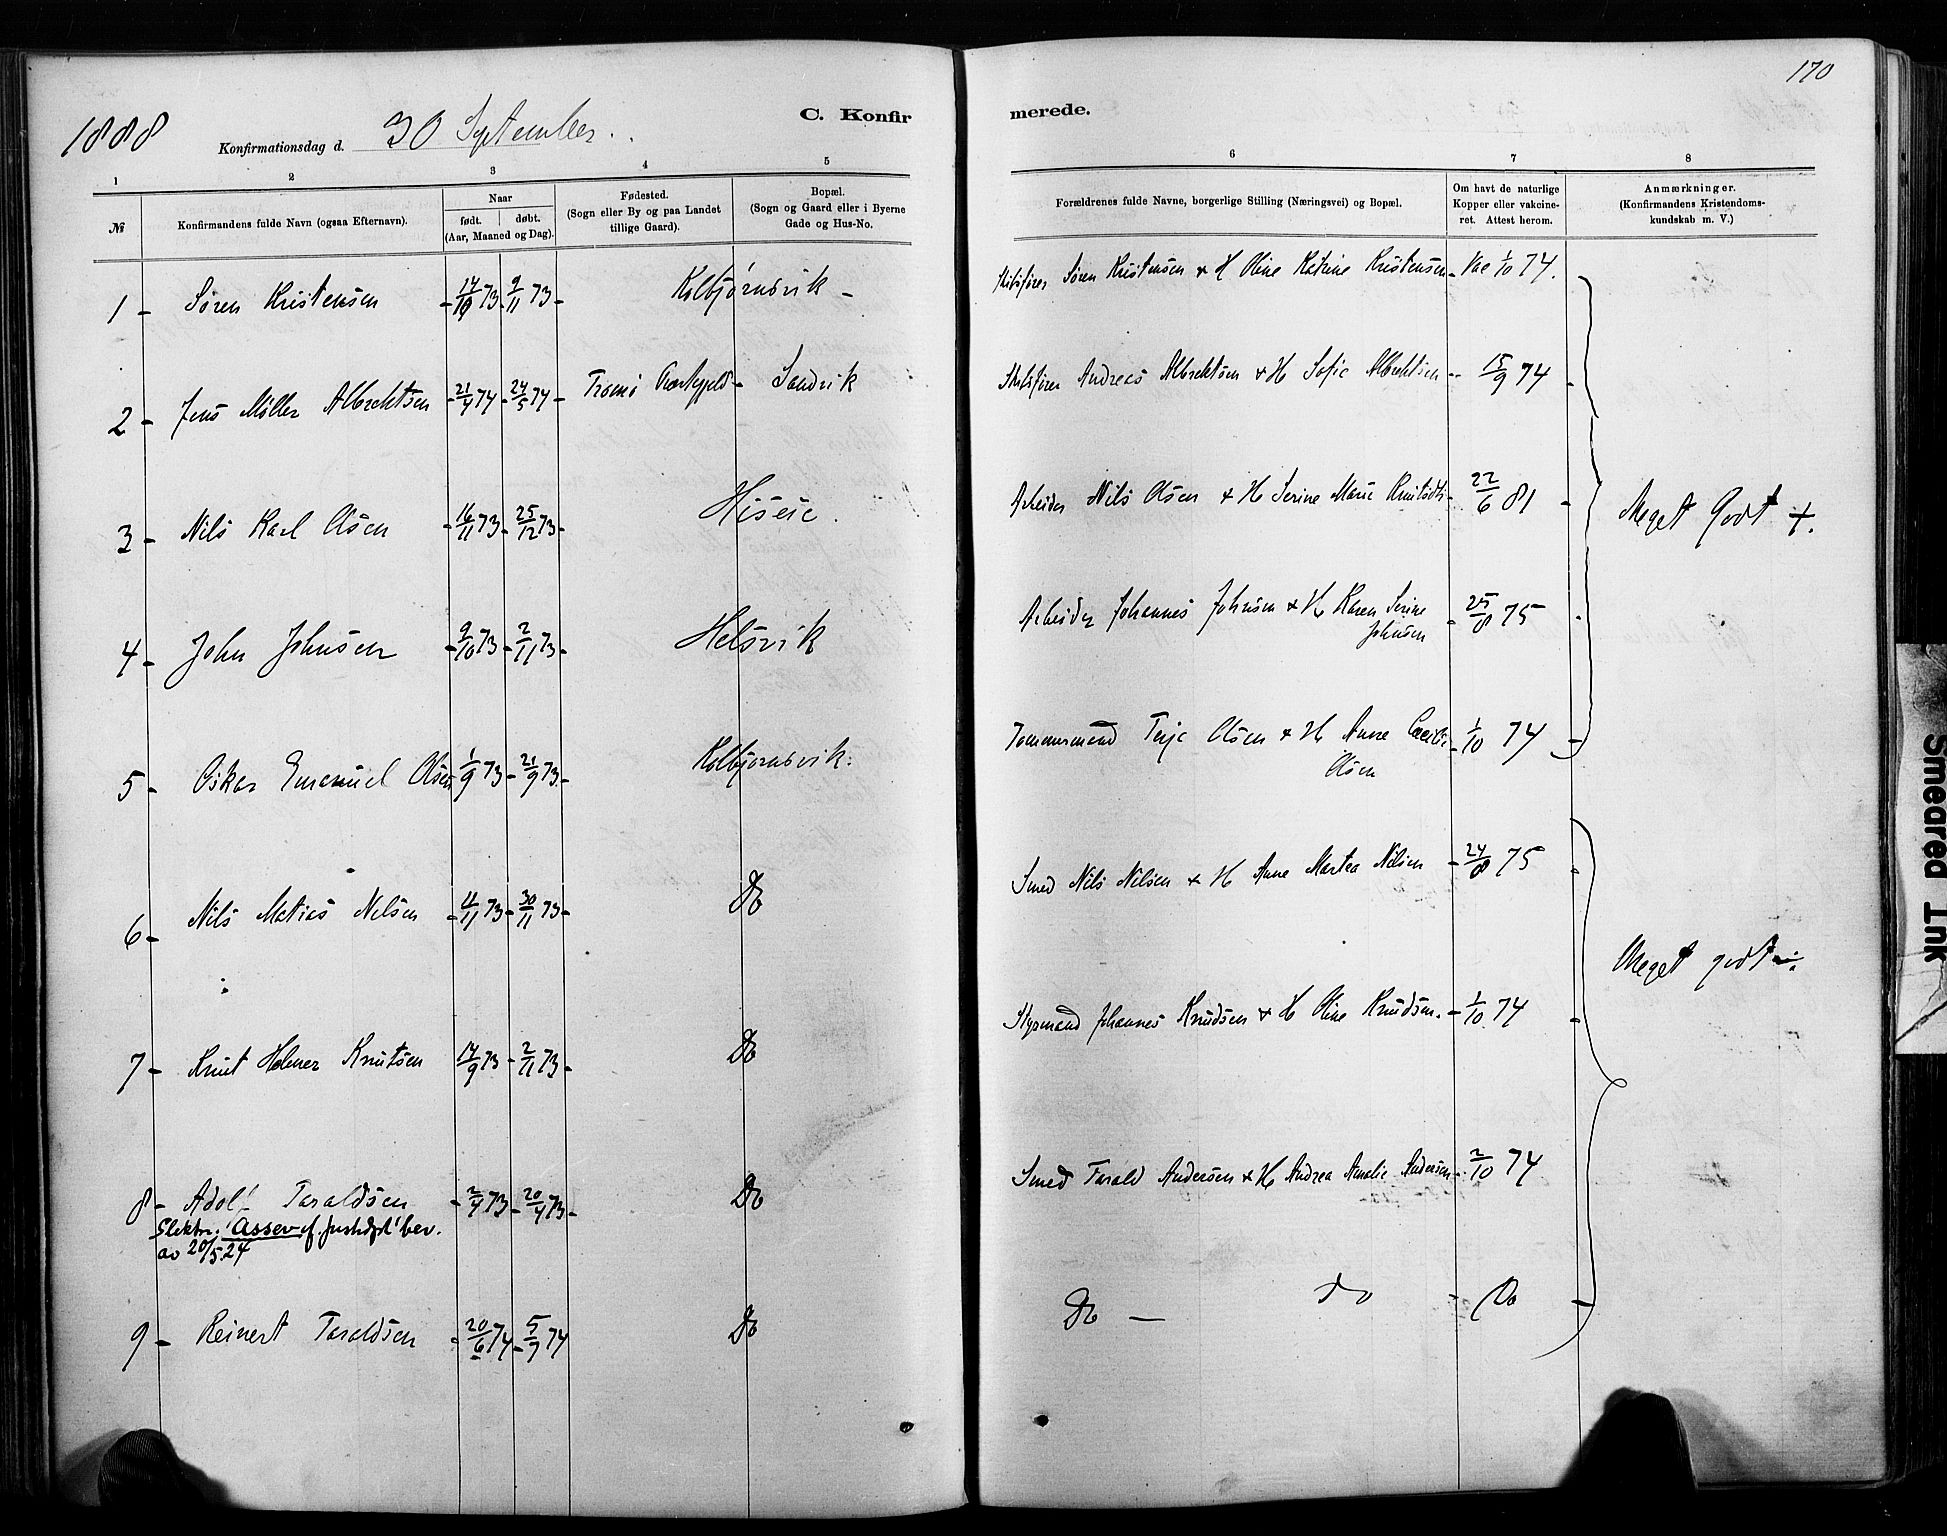 170
1888 Konfirmationsdag d. 30 September. C. Konfirmerede.
1 2 3 4 5 6 7 8
№ Konfirmandens fulde Navn (ogsaa Efternavn). Naar født. døbt. (Aar, Maaned og Dag). Fødested. (Sogn eller By og paa Landet tillige Gaard). Bopæl. (Sogn og Gaard eller i Byerne Gade og Hus-No. Forældrenes fulde Navne, borgerlige Stilling (Næringsvei) og Bopæl. Om havt de naturlige Kopper eller vakcineret. Attest herom. Anmærkninger. (Konfirmandens Kristendomskundskab m. V.)
1 - Søren Kristensen - 73 - 9/11 73 - Kolbjørnsvik - Skibsfører Søren Kristensen & H Oline Katrine Kristensen - Vac 1/10 74.
2 - Jens Møller Albrektsen - 21/4 74 - 24/5 74 - Tromø Sandvik Skibsfører Andreas Albrektsen & H Sofie Albrektsen - 15/9 74
3 - Nils Karl Olsen - 16/11 73 - 25/12 73 - Hiseie. Arbeider Nils Olsen & H Serine Marie - 22/6 81 Meget Godt +.
4 - John Johnsen - 9/10 73 - 2/11 73 - Helsvik Arbeider Johannes Johnsen & H Karen Serine Johnsen - 25/8 75
5 - Oskar Emanuel Olsen 1/9 73 - 21/9 73 - Kolbjørnsvik. Tømmermand Terje Olsen & H Anne Cecilie Olsen - 1/10 74
6 - Nils Matias Nilsen - 73 - 30/11 73 - Do Smed Nils Nilsen & H Anne Martea Nilsen - 24/8 75 Meget godt ÷.
7 - Knut Helmer Knutsen 14/9 73 - 2/11 73 - Do Styrmand Johannes Knudsen & H Oline Knudsen. - 1/10 74
8 - Adolf Taraldsen - 2/4 73 - 20/4 73 - Do Smed Tarald Andersen & H Andrea Amalie Andersen - 2/10 74
Slektn. "Assev" f. bev.
av 20/5.24
9 - Reinert Taraldsen - 20/6 74 - 5/9 74 Do Do - do - Do
Smeared Ink